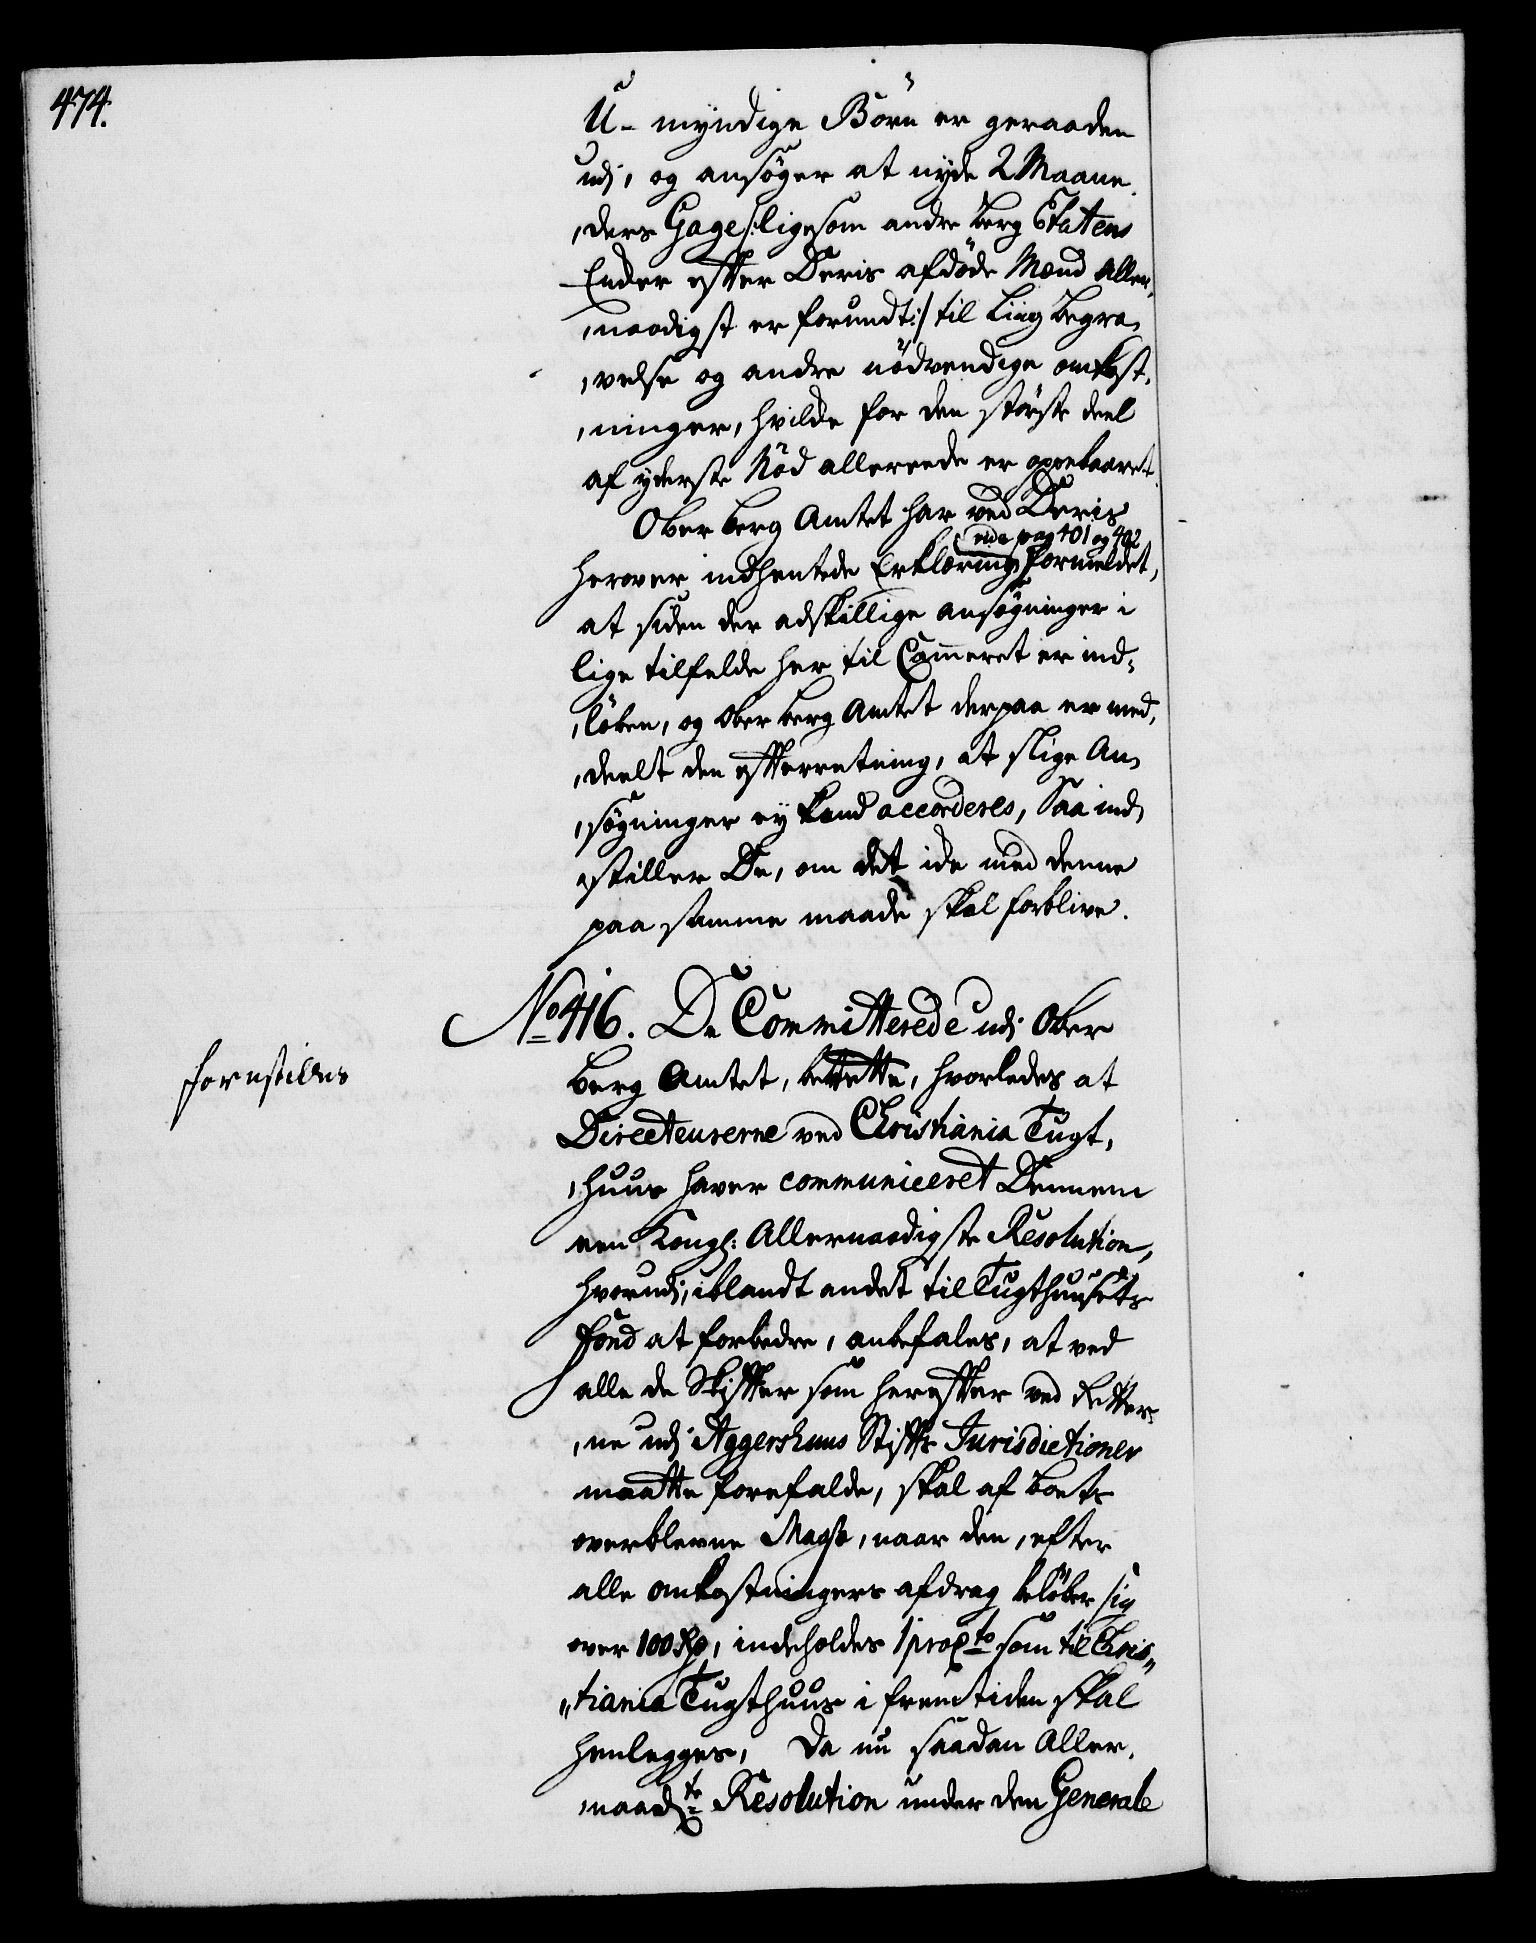 474.
U- myndige Börn er geraaden
udj, og ansöger at nyde 2 Maane-
,ders Gage /: ligesom andre Berg Etatens
Enker efter Deris afdöde Mænd Aller-
,naadigst er forundt :/ til Liig Begra-
,velse og andre nödvendige omkost-
,ninger, hvilke for den störste deel
af yderste Nöd allerede er oppebaaret.
Ober Berg Amtet har ved Deris
vide pag 401 og 402
herover indhentede Erklæring formeldet,
at siden der adskillige ansögninger i
lige tilfelde her til Cammeret er ind-
,löben, og Ober Berg Amtet derpaa er med-
,deelt den efterretning, at slige An-
,sögninger ey kand accorderes, Saa ind-
,stiller De, om det icke med denne
paa samme maade skal forblive.
No 416. De Committerede udj Ober
Berg Amtet, berette, hvorledes at
forestilles
Directeurerne ved Christiania Tugt-
,huus haver communiceret Dennem
een Kongl: Allernaadigste Resolution,
hvorudj, iblandt andet til Tugthuusets
Fond at forbedre, anbefales, at ved
alle de Skifter som herefter ved Retter-
,ne udj Aggershuus Stifts Jurisdictioner
maatte forefalde, skal af Boets
overblevne Massa, naar den, efter
alle omkostningers afdrag belöber sig
over 100 Rdr, indeholdes 1 proCto som til Chris„
„tiania Tugthuus i fremtiden skal
henlegges, Da nu saadan Aller-
,naadte Resolution under den Generale